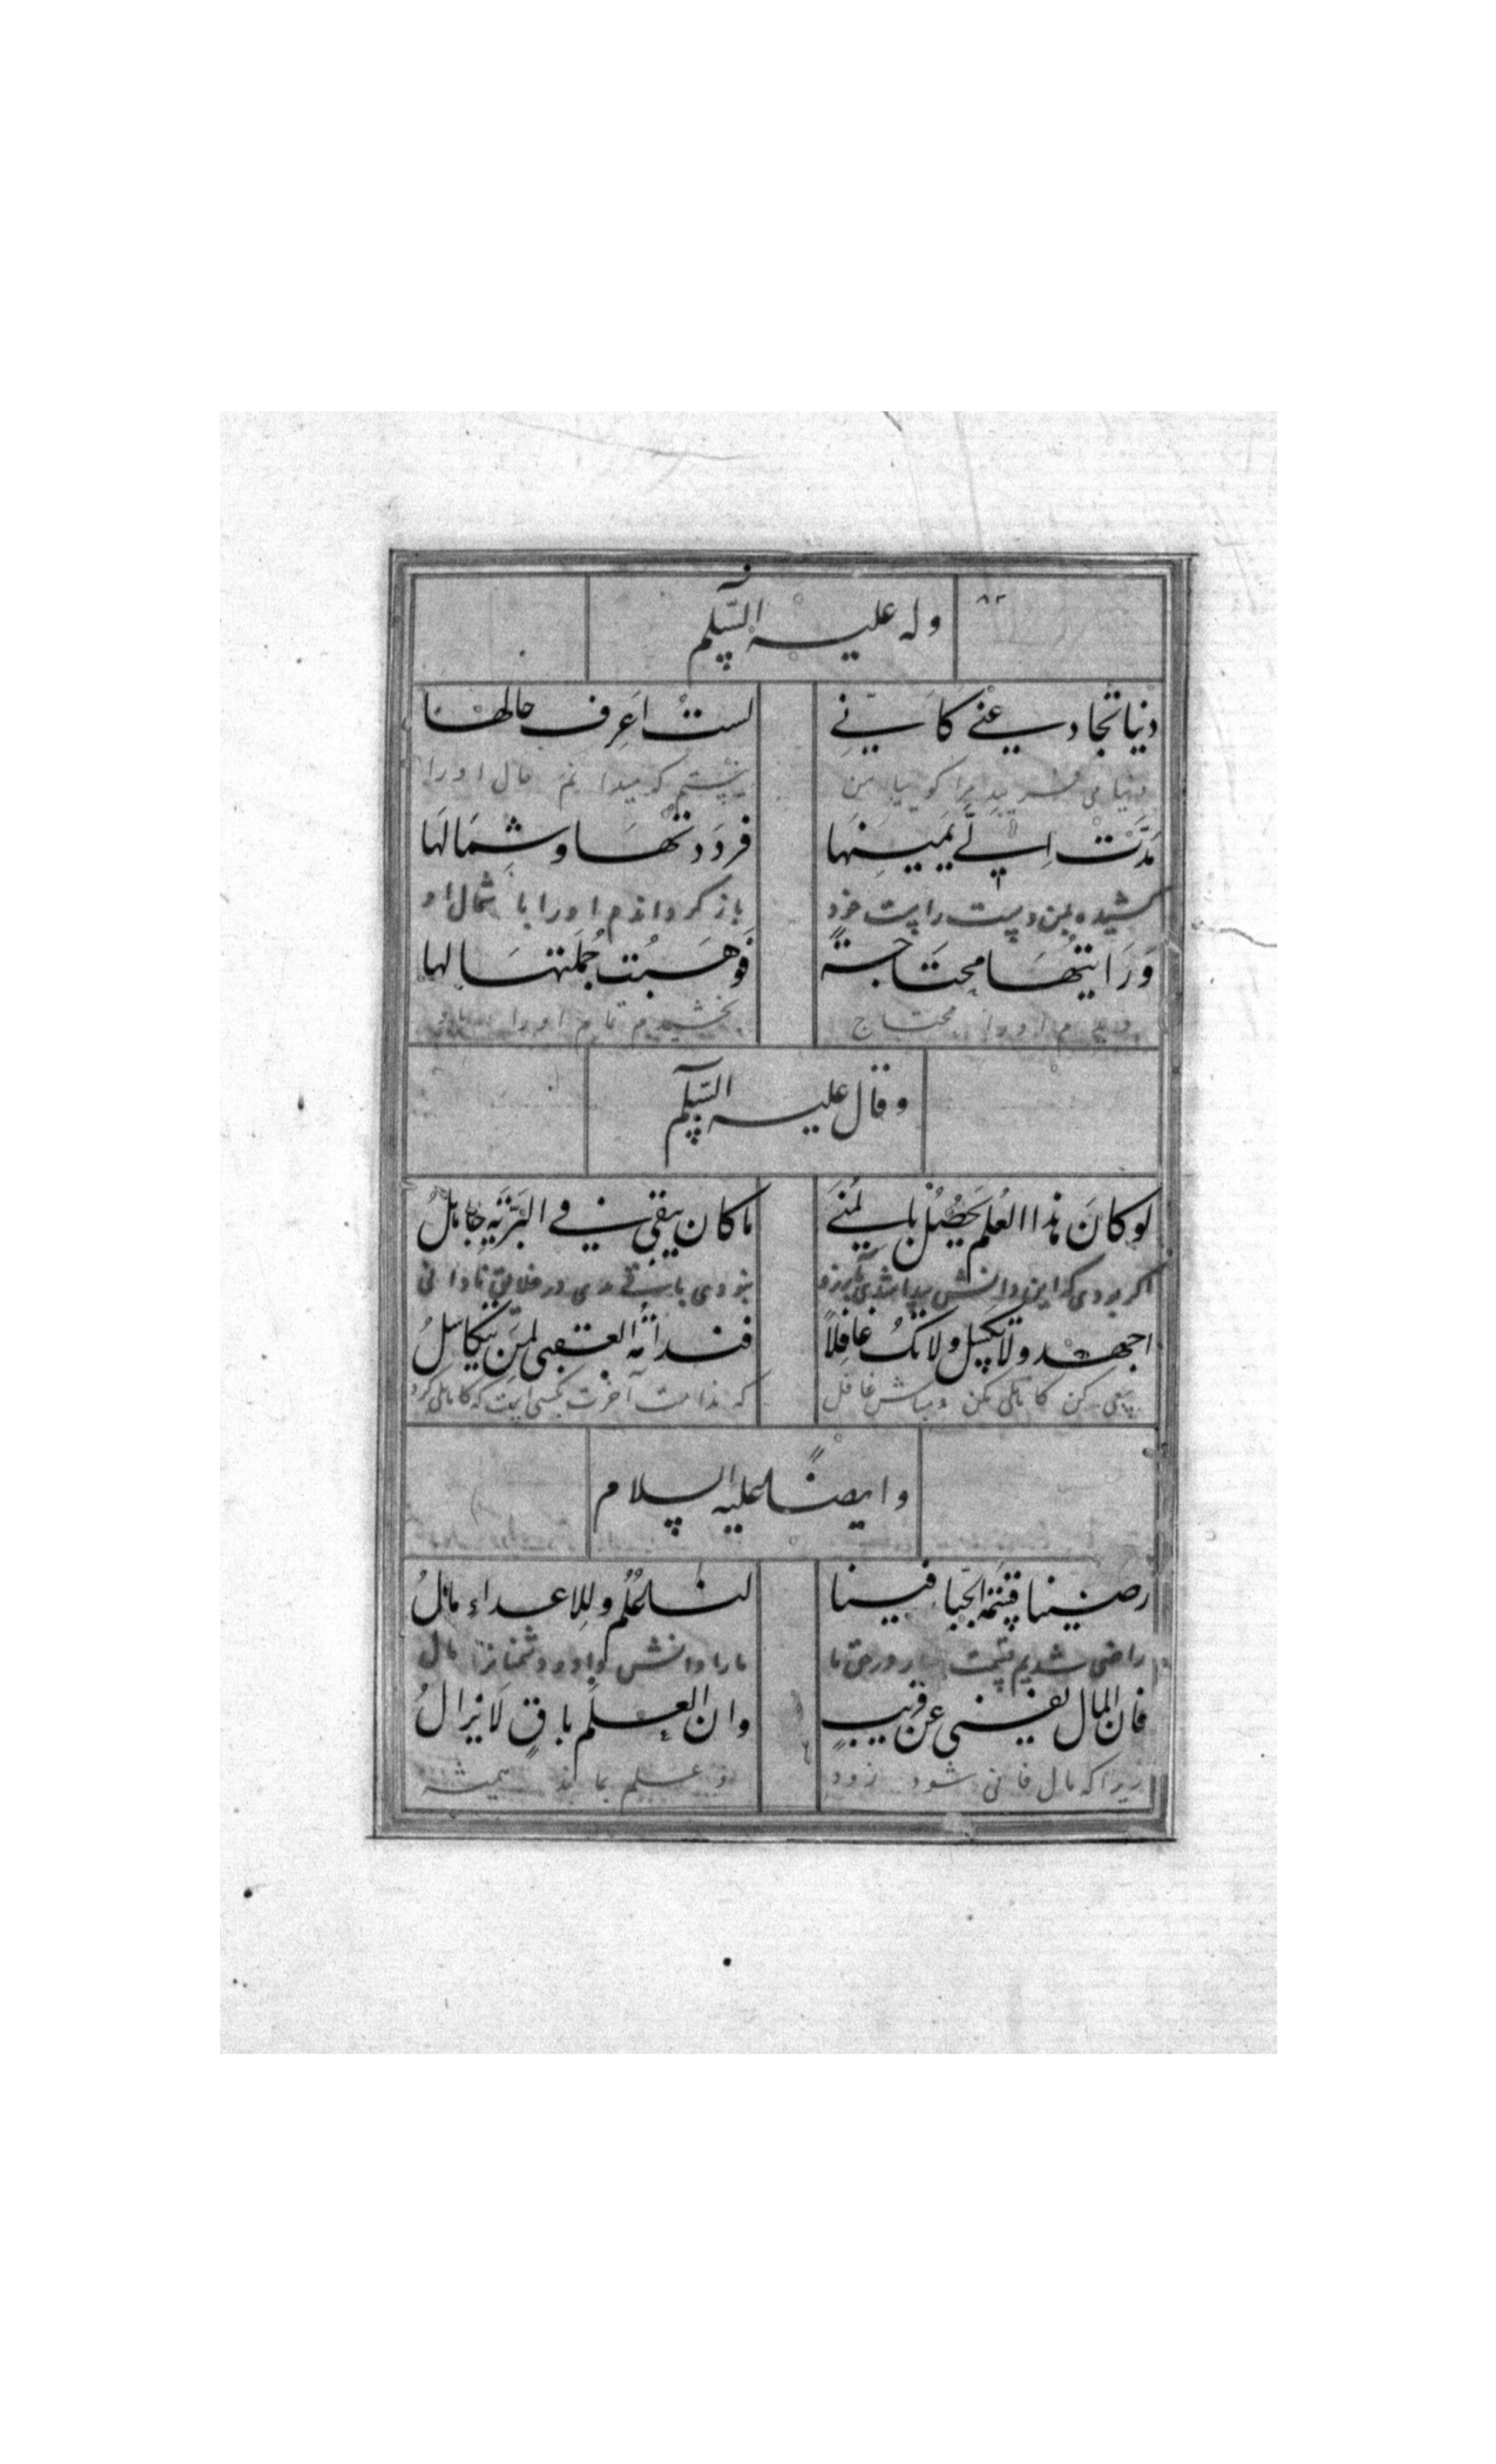 وله عليه السّلم
دنيا تخادعني كاَنّي لستُ اَعرِف حالها
دنیا می فریبد مرا کوییا من نیستم که میدانم حال اورا
مَدَّتْ اِليَّ يَمينِهَا فرَدَدتُهَا وشِمَالَهَا
کشیده بمن دست راست خود باز کرداندم اورا با شمال او
وَرَايتُهَا محتَاجةً فَوَهَبتُ جُملَتهَا لها
دیدم اورا محتاج بخشیدم تمام اورا باو
وقال عليه السّلم
لو كانَ هذا العُلم يَحصُل بالمُنىَ ما كان يبقى في البَرّيَه جاهلُ
اکر بودی که این دانش پیدا شدی بآرزو نبودی باقی مدی در خلایق نادانی
اجهد ولا تكسِل ولا تكُ غافِلاً فندامَة العقبى لمِنَ يتكاسلُ
سعی کن کاهلی مکن و مباش غافل که ندامت آخرت بکسی است که کاهلی کرد
وايضًا عليه السلام
رضينا قسمَة الجبّار فينا لنا عُلُم وللِاعداء مالُ
راضی شدیم قسمت جبار در حق ما مارا دانش داد و دشمنانرا مال
فان المال يفنى عن قريبٍ وان العِلم باقٍ لا يزالُ
زیرا که مال فانی شود زود و علم بماند همیشه